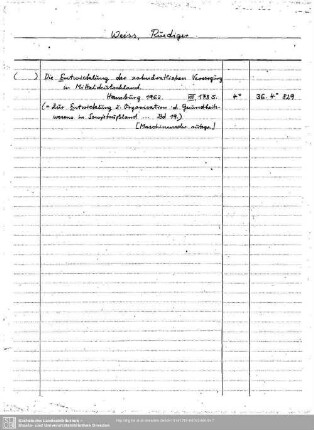 Weiss, Ruediger
( ) Die Entwicklung der zahnärztlichen Versorgung
in Mitteldeutschland.
Hamburg 1962. III, 198 S. 4° 36. 4° 829
(= Zur Entwicklung u. Organisation d. Gesundheits-
wesens in Sowjetrußland ... Bd 19.)
[Maschinenschr. autogr.]
Sächsische Landesbibliothek -
Staats- und Universitätsbibliothek Dresden